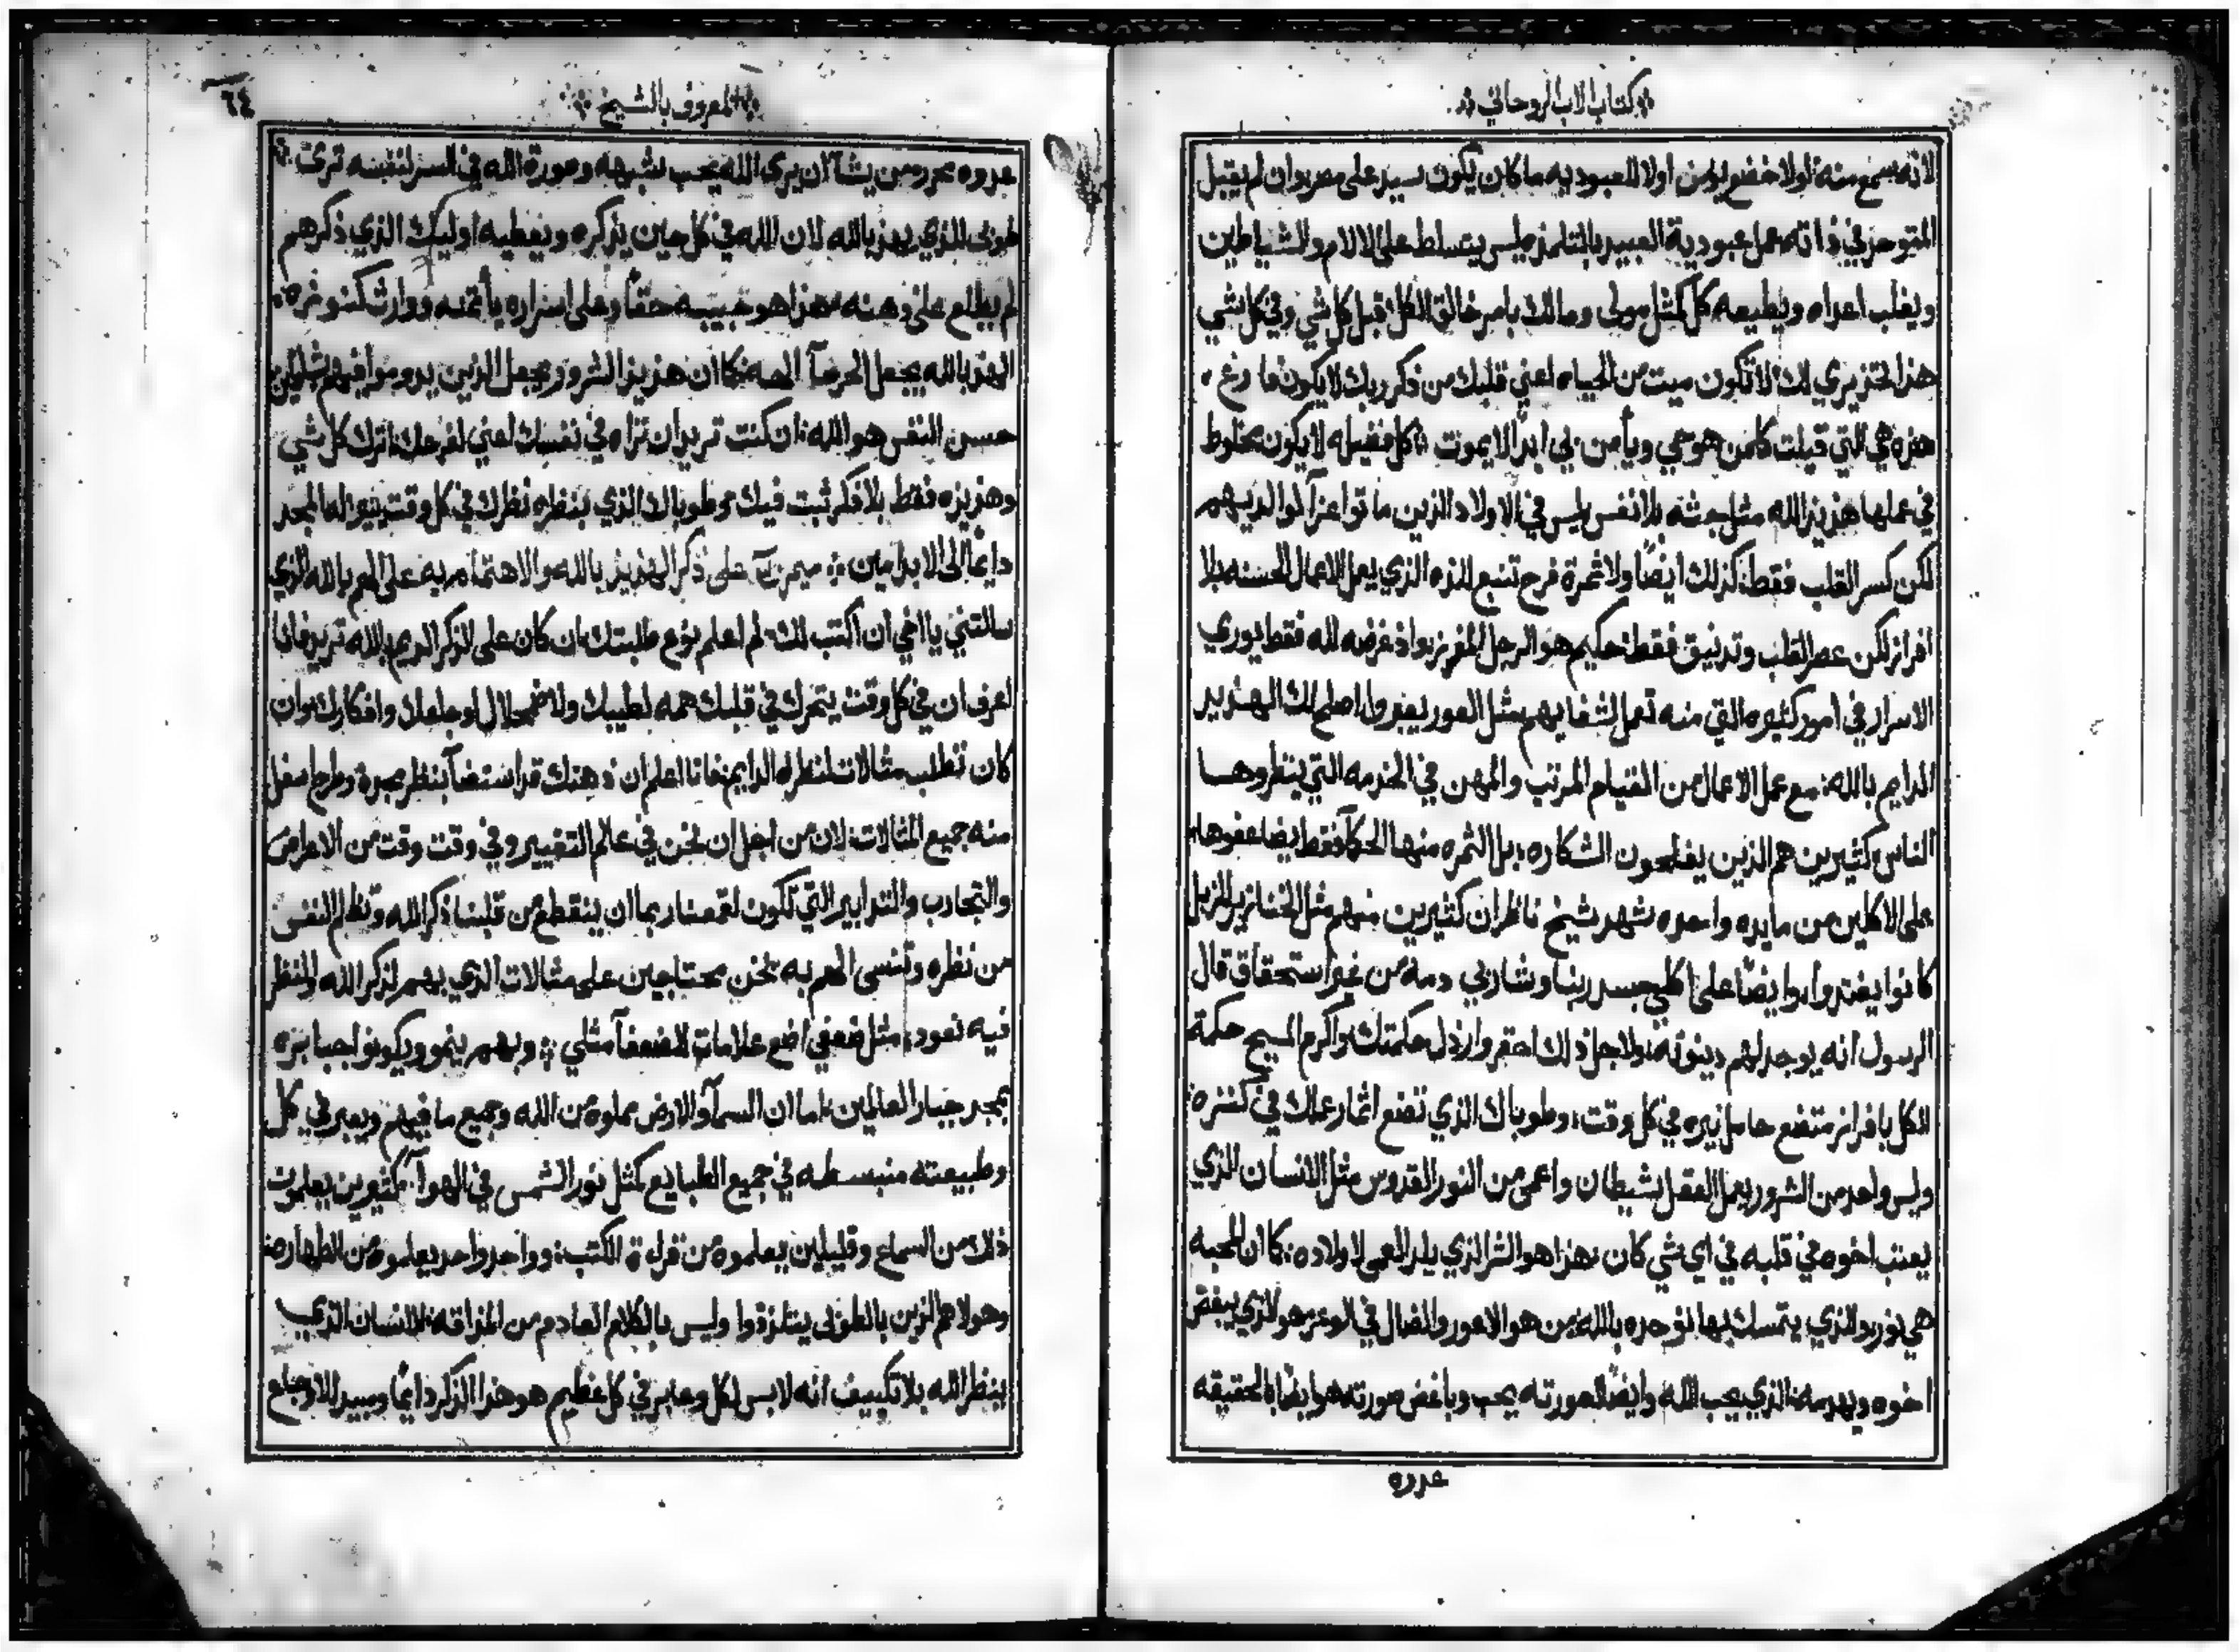 كتاب الاب الروحاني
لانه سمع منه لولا خضع يوسف اولا للعبوديه ما كان يكون سيد على مصر وان لم يقبل
المتوحد في ذاته عمل عبودية العبيد بالتلمذه ليس يتسلط على الالام والشياطين
ويغلب اعداه ويطيعه كل كمثل مولى ومالك بامر خالق الكل قبل كل شي وفي كل شي
هذا الحذر يدي لك لا تكون ميت من الحياه اعني قلبك من ذكر ربك لا يكون فارغ
هذه هي التي قيلت كلمن هو حي ويأمن بي ابدا لا يموت كل فضيله لا يكون مخلوط
في عملها هذيذ الله مثل جثه بلا نفس ليس في الاولاد الذين ماتوا عزآ لوالديهم
لكن كسر القلب فقط كذلك ايضا ولا ثمرة فرح تتبع لهذه الذي يعمل الاعمال الحسنه بلا
افراز لكن عصر القلب وتدنيق فقط حكيم هو الرجل المفرز واذ غرضه لله فقط يوري
الاسرار في امور كثيره التي منه تعمل لشفايهم مثل العور يعبر ول اصلح لك الهذيذ
الدايم بالله مع عمل الاعمال من القيام المرتب والمهن في الخدمه التي ينظروها
الناس كثيرين هم الذين يفلحون الشكاره بل الثمره منها الحكمآ فقط يضاعفوها
على الاكلين من مايده واحده شهد شيخ ناظر ان كثيرين منهم مثل الخنازير الزبل
كانوا يغتدوا وايضا على اكلي جسد ربنا وشاربي دمه من غير استحقاق قال
الرسول انه يوجد لهم دينونه ولاجل ذلك احقر وارذل حكمتك واكرم المسيح حكمة
الكل بافراز متضع حامل نيره في كل وقت وطوباك الذي تضع اثمار عملك في كنزه
وليس واحد من الشرور يعمل العقل شيطان واعمى من النور القدوس مثل الانسان الذي
يعتب اخوه في قلبه في اي شي كان هذا هو الشر الذي يلد العمى لاولاده كما ان المحبه
هي نور والذي يتمسك بها توحده بالله من هو الاعور والضال في الوعر هو الذي يبغض
اخوه ويهدمه الذي يحب الله وايضا لصورته يحب وباغض صورته هو ايضا بالحقيقه
عدوه
المعروف بالشيخ
٦٤
عدوه عدوه من يشآ ان يرى الله يحب شبهه وصورة الله في السر لنفسه ترى
طوبى للذي يهذ بالله لان الله في كل حين يذكره ويعطيه اوليك الذي ذكرهم
لم يطلع على ذهنه هذا هو حبيبه حقا وعلى اسراره يأتمنه ووارث كنوزه
الهذ بالله يجعل الحرضآ الهه كما ان هذيذ الشرور يجعل الذين يدوموا فيهم شياطين
حسن النفس هو الله ان كنت تريد ان تراه في نفسك اعني لفرحك اترك كل شي
وهذيذه فقط بلا فكر ثبت فيك وطوباك الذي بنظره نظرك في كل وقت ينير له المجد
دايما الى الابد امين ميمر على ذكر الهذيذ بالله والاهتمام به على الهم بالله الذي
سالتني يا اخي ان اكتب لك لم اعلم نوع طلبتك ان كان على الذكر الديم بالله تريد فانا
اعرف ان في كل وقت يتحرك في قلبك همه لطيبك ولاضمحلال اوجاعك وافكارك وان
كان تطلب مثالات لنظره الدايم فانا اعلم ان ذهنك قد استضآ بنظر مجده وطرح اسفل
منه جميع المثالات لان من اجل ان نحن في عالم التغيير وفي وقت وقت من الاعراض
والتجارب والتدابير التي تكون لقمعنا ربما ان ينقطع من قلبنا ذكر الله وتظلم النفس
من نظره وتنسى الهم به نحن محتاجين على مثالات الذي بهم لذكر الله والنظر
فيه نعود مثل ضعفي اضع علامات للضعفآ مثلي وبهم ينمو ويكونوا جبابره
بمجد جبار العالمين اما ان السمآ والارض مملوه من الله وجميع ما فيهم ويعبر في كل
وطبيعته منبسطه في جميع الطبايع كمثل نور الشمس في الهوآ كثيرين يعلمون
ذلك من السماع وقليلين يعلموه من قراة الكتب وواحد واحد يعلموه من الطهاره
وهولا هم الذين بالطوبى يتلذذوا وليس بالكلام العادم من المذاقه الانسان الذي
ينظر الله بلا تكييف انه لابس لكل وعابر في كل عظيم هو هذا الذكر دايما ومبيد للاوجاع